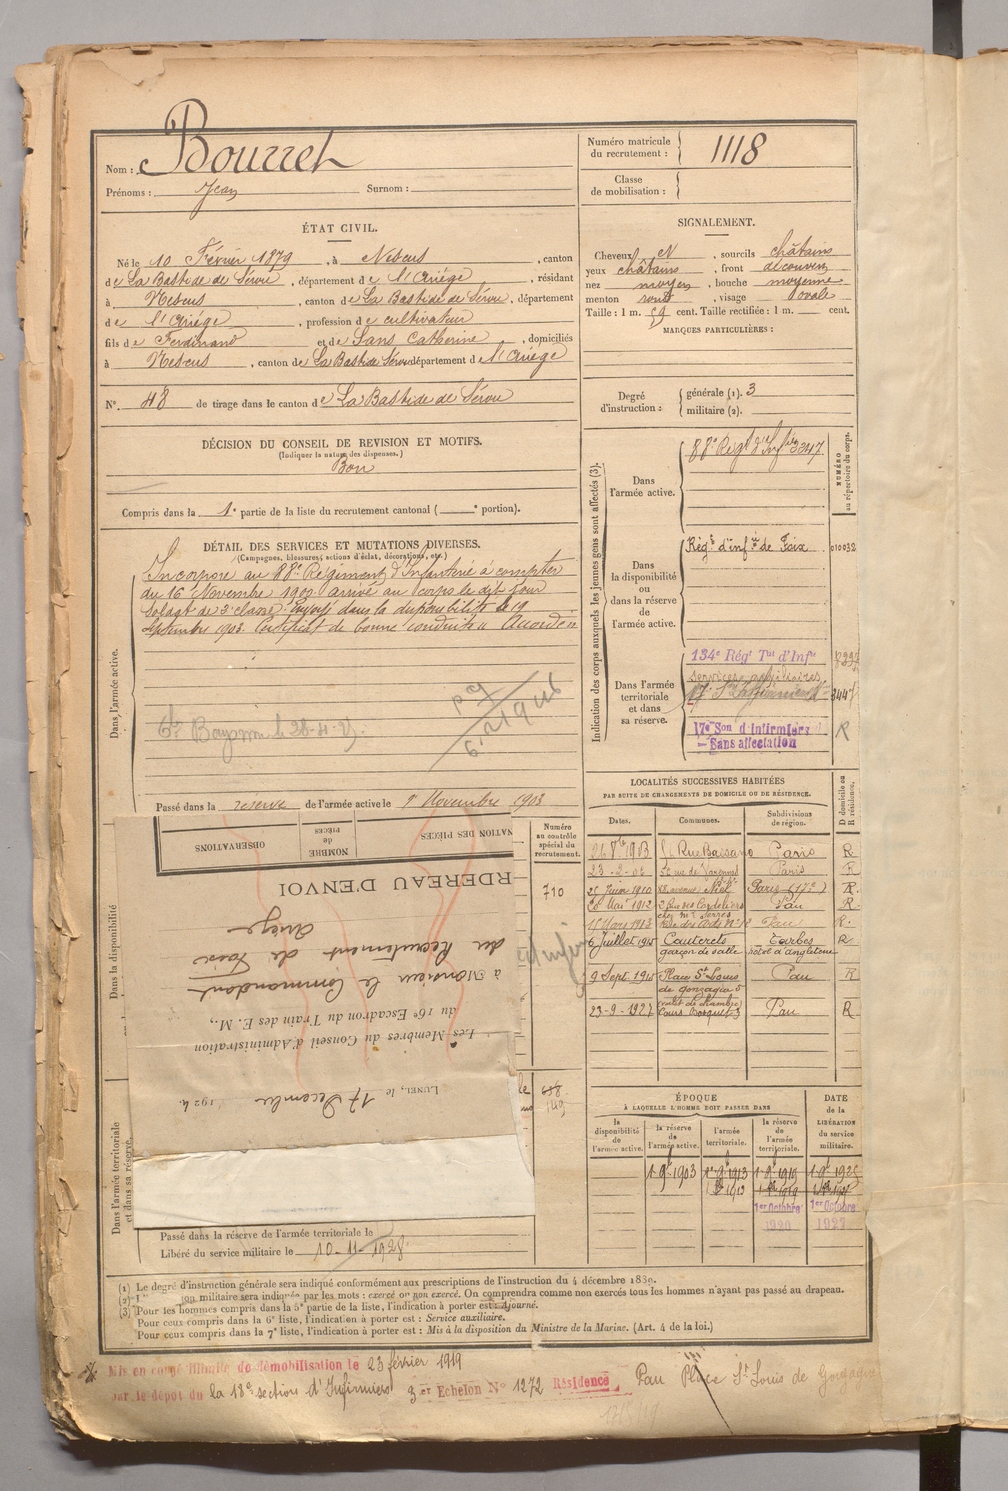 Nom : Bourret
Prénoms : Jean Surnom :
Numéro matricule du recrutement : 1118
Classe de mobilisation :
ÉTAT CIVIL.
Né le 10 Février 1879, à Nescus, canton
de La Bastide de Sérou, département de l'Ariège, résidant
à Nescus, canton de La Bastide de Sérou, département
de l'Ariège, profession de cultivateur
fils de Ferdinand et de Sans Catherine, domiciliés
à Nescus, canton de La Bastide Sérou département de l'Ariège
N° 48 de tirage dans le canton de La Bastide de Sérou
SIGNALEMENT.
Cheveux N, sourcils châtains
yeux châtains, front découvert
nez moyen, bouche moyenne
menton rond, visage ovale
Taille : 1 m. 59 cent. Taille rectifiée : 1 m. cent.
MARQUES PARTICULIÈRES :
Degré d'instruction :
générale (1). 3
militaire (2).
DÉCISION DU CONSEIL DE REVISION ET MOTIFS.
(Indiquer la nature des dispenses.)
Bon
Compris dans la 1e partie de la liste du recrutement cantonal ( e portion).
DÉTAIL DES SERVICES ET MUTATIONS DIVERSES.
(Campagnes, blessures, actions d'éclat, décorations, etc.)
Dans l'armée active.
Incorporé au 88e Régiment d'Infanterie à compter
du 16 Novembre 1900 arrivé au corps le dit jour
Soldat de 2e classe. Envoyé dans la disponibilité le 19
Septembre 1903. Certificat de bonne conduite Accordé
Bayonne le 28-4-
Passé dans la réserve de l'armée active le 1er Novembre 1903
Indication des corps auxquels les jeunes gens sont affectés (3).
NUMÉRO au répertoire du corps.
Dans l'armée active.
88e Régt d'Infie 3247
Dans la disponibilité ou dans la réserve de l'armée active.
Régt d'infie de Foix 010032
Dans l'armée territoriale et dans sa réserve.
134e Régt Tal d'Infie
Services auxiliaires
17e Son d'infirmiers
Sans affectation
R
LOCALITÉS SUCCESSIVES HABITÉES
PAR SUITE DE CHANGEMENTS DE DOMICILE OU DE RÉSIDENCE.
Dates. Communes. Subdivisions de région. D domicile ou R résidence.
1903 Rue Bassano Paris R
23-2-06 rue de Varennes Paris R
25 1910 avenue Niel Paris (17e) R.
26 Mai 1912 2 Rue des Cordeliers Pau R.
chez Mr Serres
15 Mars 1913 Pau R.
6 Juillet 1915 Cauterets Tarbes R
garçon de salle hôtel d'angleterre
9 Sept. 1915 Place St Louis Pau R
de gonzague 5
(valet de chambre)
23-9-1927 Cours Bosquet 3 Pau R
Numéro au contrôle spécial du recrutement.
710
658
149
Dans la disponibilité
NATION DES PIÈCES
NOMBRE de PIÈCES
OBSERVATIONS
RDEREAU D'ENVOI
Lunel, le 17 Décembre 1924.
Les Membres du Conseil d'Administration
du 16e Escadron du Train des E. M.,
à Monsieur le Commandant
du Recrutement de Foix
Ariège
Dans l'armée territoriale et dans sa réserve.
Passé dans la réserve de l'armée territoriale le
Libéré du service militaire le 10-11-1928.
ÉPOQUE
À LAQUELLE L'HOMME DOIT PASSER DANS
DATE de la LIBÉRATION du service militaire.
la disponibilité de l'armée active. la réserve de l'armée active. l'armée territoriale. la réserve de l'armée territoriale.
1-9bre 1903 1er 9bre 1913 1-9bre 1919
1er Octobre 1920 1er Octobre 1927
(1) Le degré d'instruction générale sera indiqué conformément aux prescriptions de l'instruction du 4 décembre 1889.
(2) L' ion militaire sera indiquée par les mots : exercé ou non exercé. On comprendra comme non exercés tous les hommes n'ayant pas passé au drapeau.
(3) Pour les hommes compris dans la 5e partie de la liste, l'indication à porter est : Ajourné.
Pour ceux compris dans la 6e liste, l'indication à porter est : Service auxiliaire.
Pour ceux compris dans la 7e liste, l'indication à porter est : Mis à la disposition du Ministre de la Marine. (Art. 4 de la loi.)
Mis en congé illimité de démobilisation le 23 février 1919
par le dépôt du la 18e section d'Infirmiers 3er Echelon N° 1272 Résidence Pau Place St Louis de Gonzague